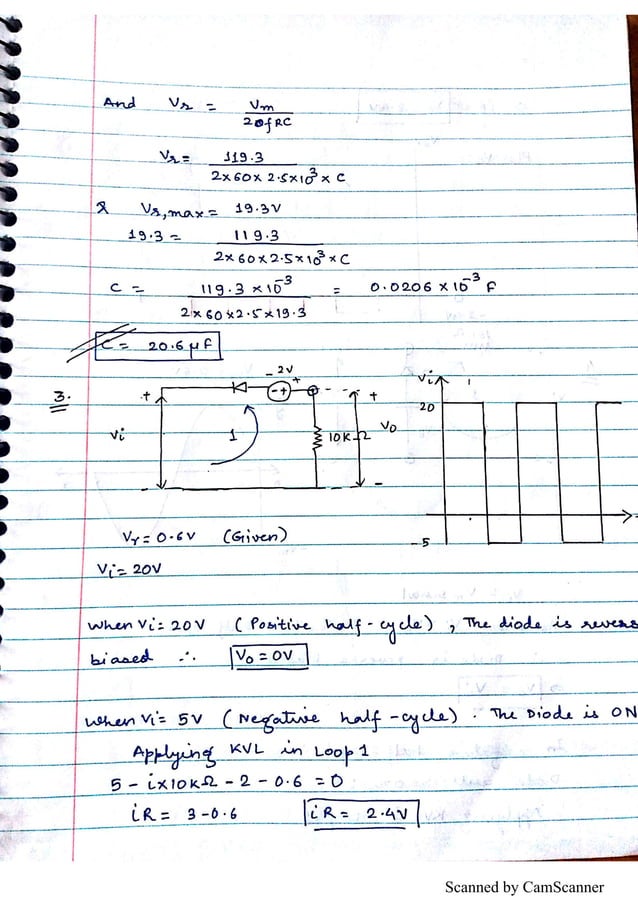 And Vr = Vm / 2fRC
Vr = 119.3 / 2×60×2.5×10³×C
& Vr,max = 19.3V
19.3 = 119.3 / 2×60×2.5×10³×C
C = 119.3×10⁻³ / 2×60×2.5×19.3 = 0.0206×10⁻³ F
C = 20.6 μF
3.
- 2V +
- +
+ Vi -
1
10KΩ
+ Vo -
Vi
20
-5
Vγ = 0.6V (Given)
Vi = 20V
When Vi = 20V (Positive half-cycle), The diode is revers
biased ∴ Vo = 0V
When Vi = 5V (Negative half-cycle). The Diode is ON
Applying KVL in Loop 1
5 - i×10KΩ - 2 - 0.6 = 0
iR = 3 - 0.6 iR = 2.4V
Scanned by CamScanner